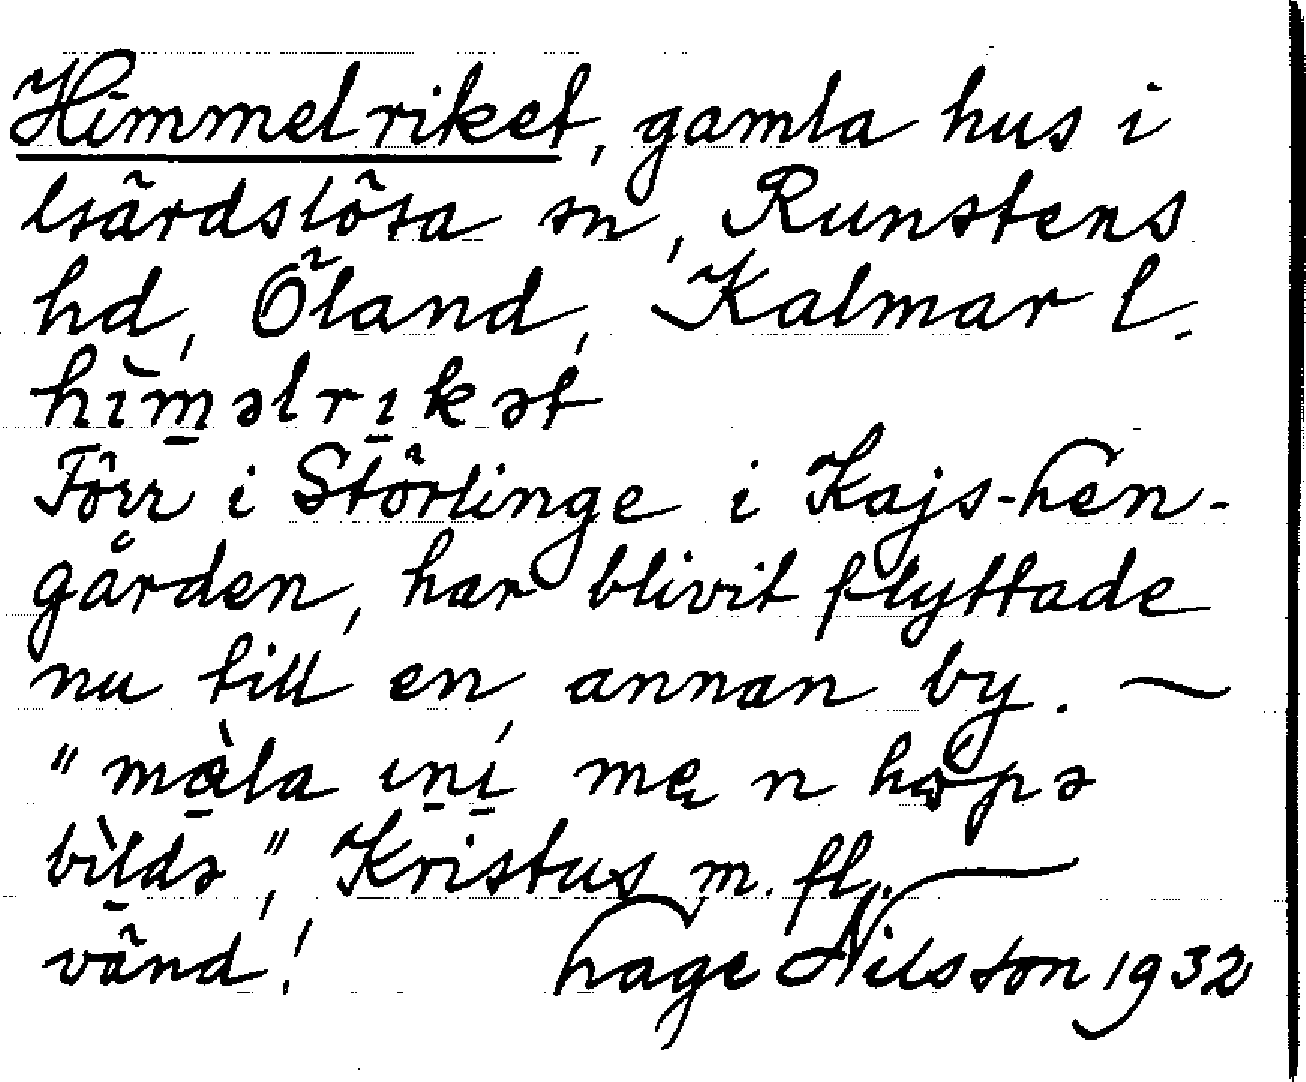 Himmelriket, gamla hus i
Gärdslösa sn, Runstens
hd, Öland, Kalmar l.
hìm̱əlrı̱kət
Förr i Störlinge i Kajs-Ten-
gården, har blivit flyttade
nu till en annan by. —
"mà̱la ıṉí̱ mę n hǫpə
bìḻdə", Kristus m. fl. —
vänd! Tage Nilsson 1932